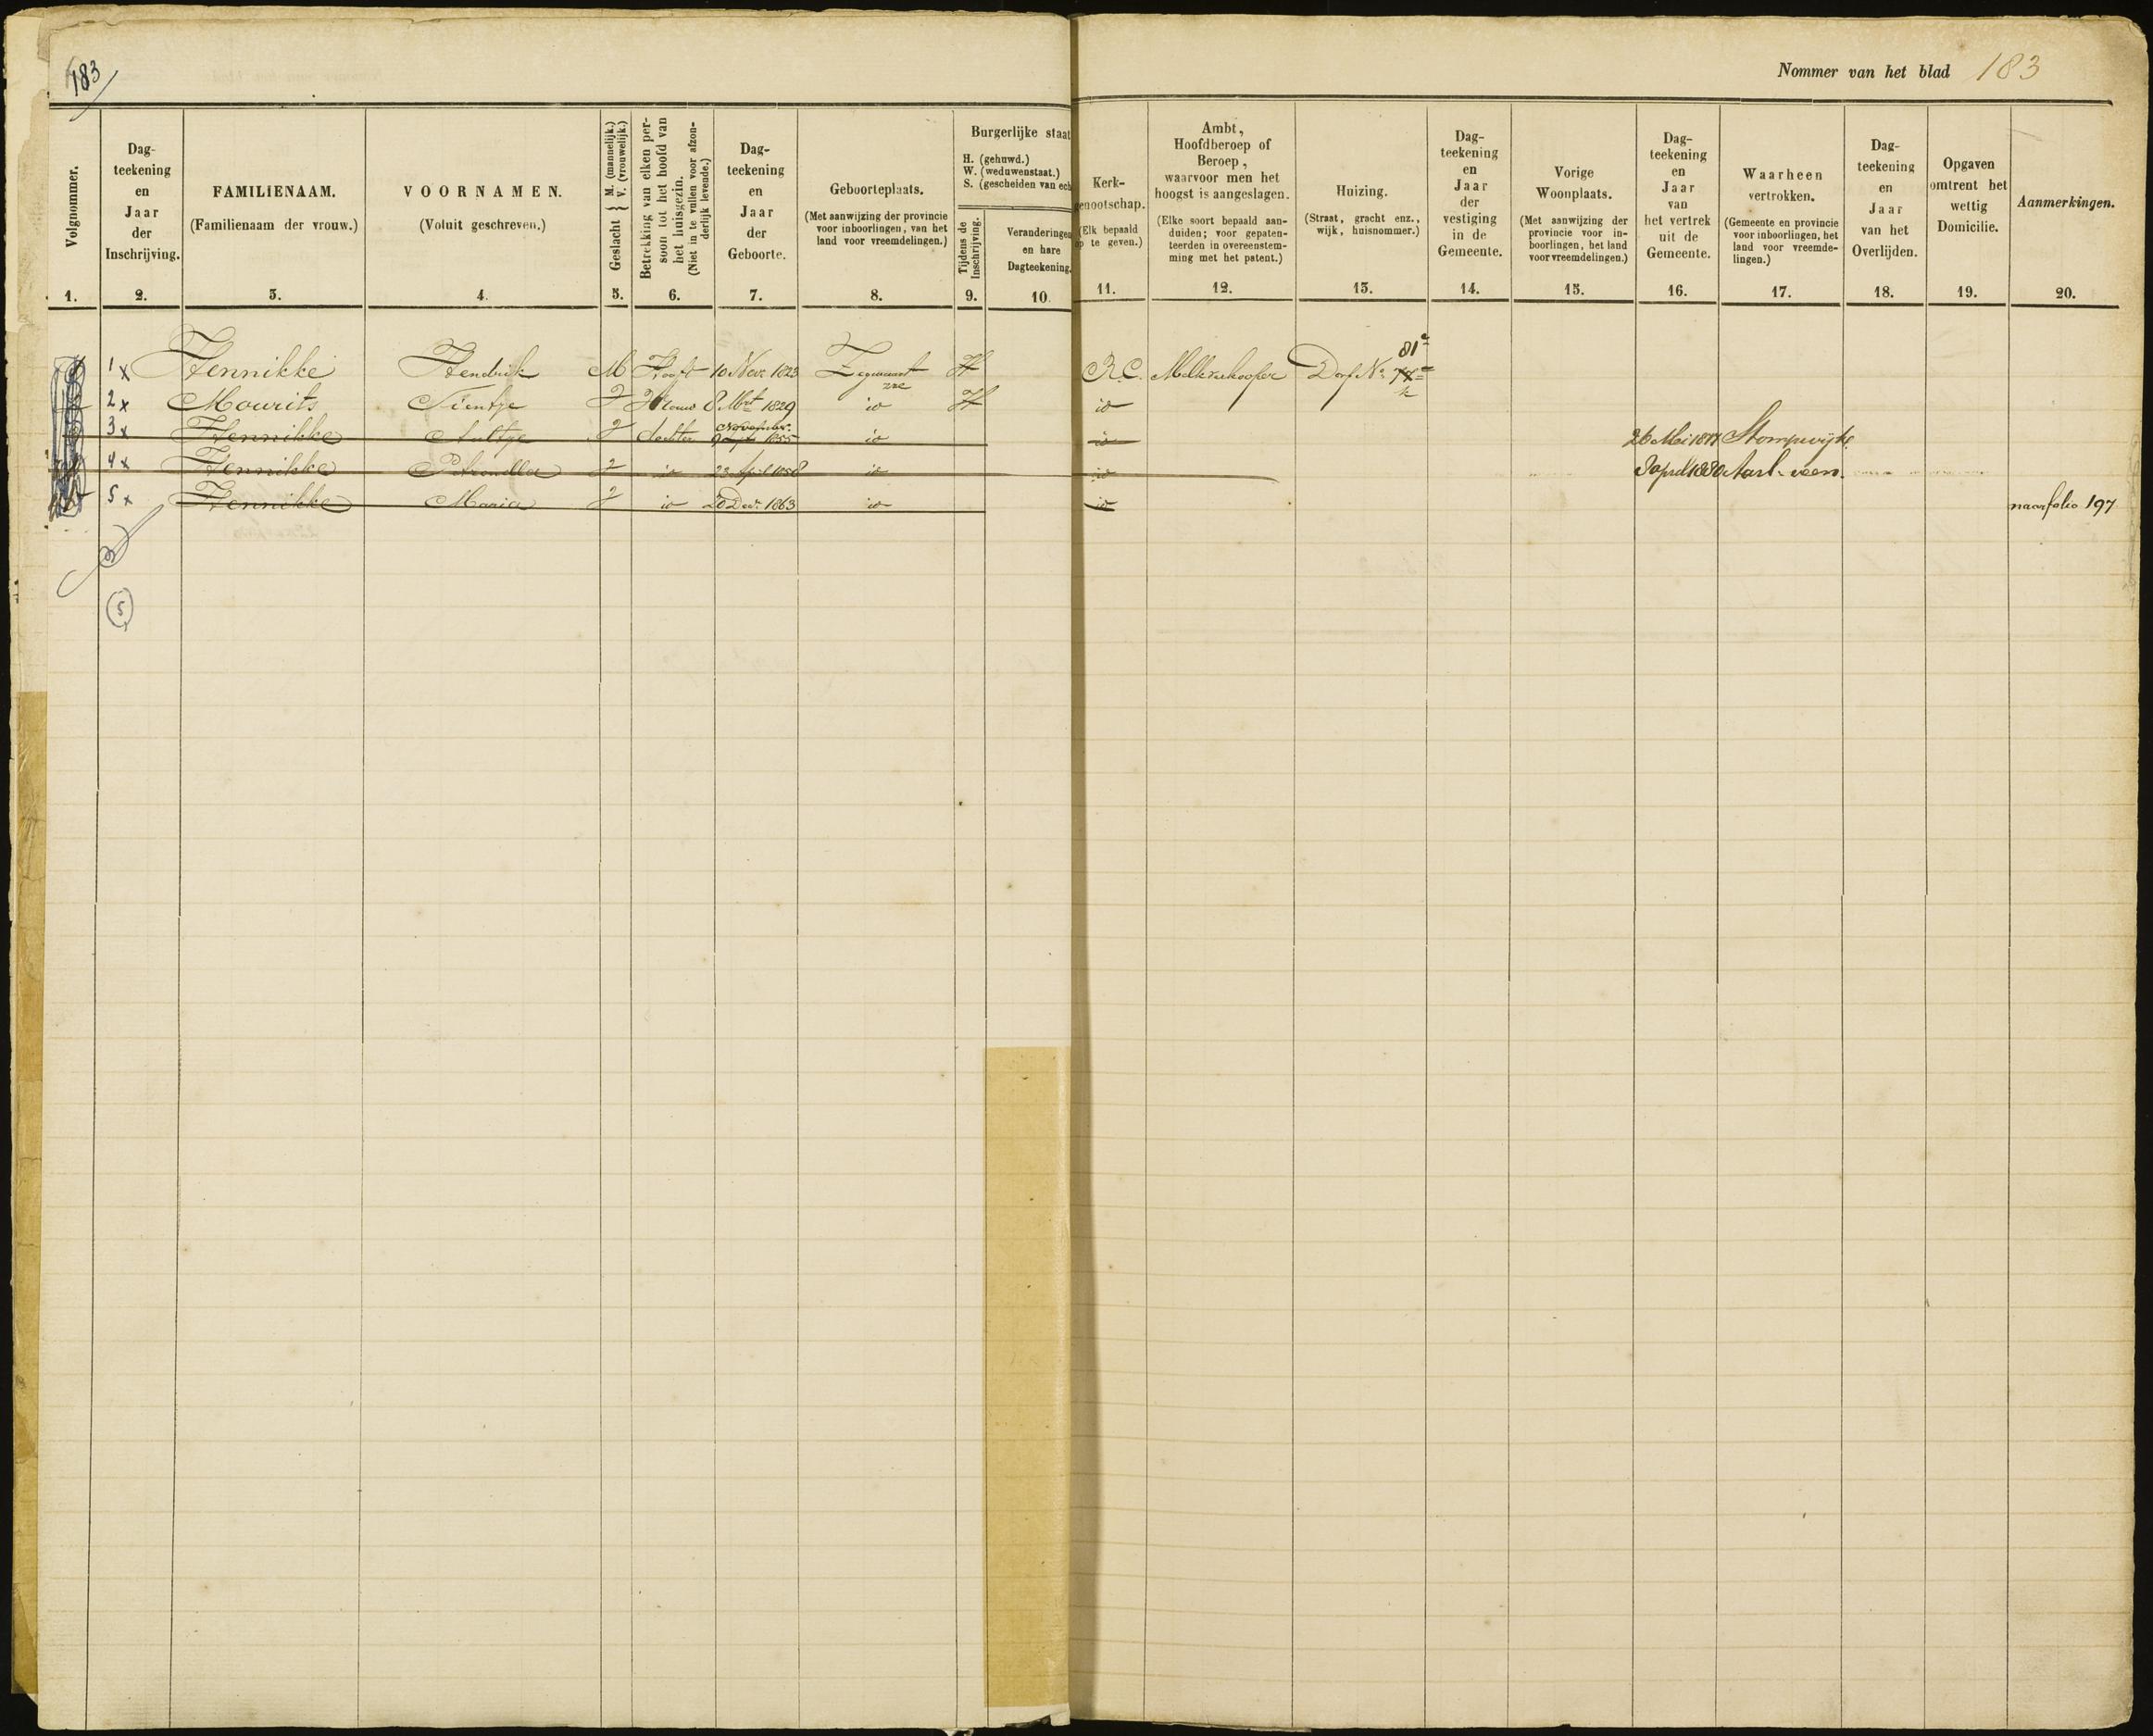 183
Nommer van het blad 183
Volgnommer.
1.
Dag-
teekening
en
Jaar
der
Inschrijving.
2.
FAMILIENAAM.
(Familienaam der vrouw.)
3.
VOORNAMEN.
(Voluit geschreven.)
4.
Geslacht { M. (mannelijk.) V. (vrouwelijk.)
5.
Betrekking van elken per-
soon tot het hoofd van
het huisgezin.
(Niet in te vullen voor afzon-
derlijk levende.)
6.
Dag-
teekening
en
Jaar
der
Geboorte.
7.
Geboorteplaats.
(Met aanwijzing der provincie
voor inboorlingen, van het
land voor vreemdelingen.)
8.
Burgerlijke staat
H. (gehuwd.)
W. (weduwenstaat.)
S. (gescheiden van ech
Tijdens de
Inschrijving.
9.
Veranderingen
en hare
Dagteekening.
10.
Kerk-
genootschap.
(Elk bepaald
op te geven.)
11.
Ambt,
Hoofdberoep of
Beroep,
waarvoor men het
hoogst is aangeslagen.
(Elke soort bepaald aan-
duiden; voor gepaten-
teerden in overeenstem-
ming met het patent.)
12.
Huizing.
(Straat, gracht enz.,
wijk, huisnommer.)
13.
Dag-
teekening
en
Jaar
der
vestiging
in de
Gemeente.
14.
Vorige
Woonplaats.
(Met aanwijzing der
provincie voor in-
boorlingen, het land
voor vreemdelingen.)
15.
Dag-
teekening
en
Jaar
van
het vertrek
uit de
Gemeente.
16.
Waarheen
vertrokken.
(Gemeente en provincie
voor inboorlingen, het
land voor vreemde-
lingen.)
17.
Dag-
teekening
en
Jaar
van het
Overlijden.
18.
Opgaven
omtrent het
wettig
Domicilie.
19.
Aanmerkingen.
20.
1 x Hennikke Hendrik M Hooft 10 Nov. 1823 Zegwaart H R.C. Melkverkooper Dorp No. 81a
2 x Mourits Sientje V Vrouw 8 Mrt 1829 id H id
3 x Hennikke V dochter 9 November 1855 id id 26 Mei Stompwijk
4 x Hennikke Petronella V id 23 April 1858 id id april 1880 Aarl. veen.
5 x Hennikke Maria V id 20 Dec. 1863 id id naar folio 197
5